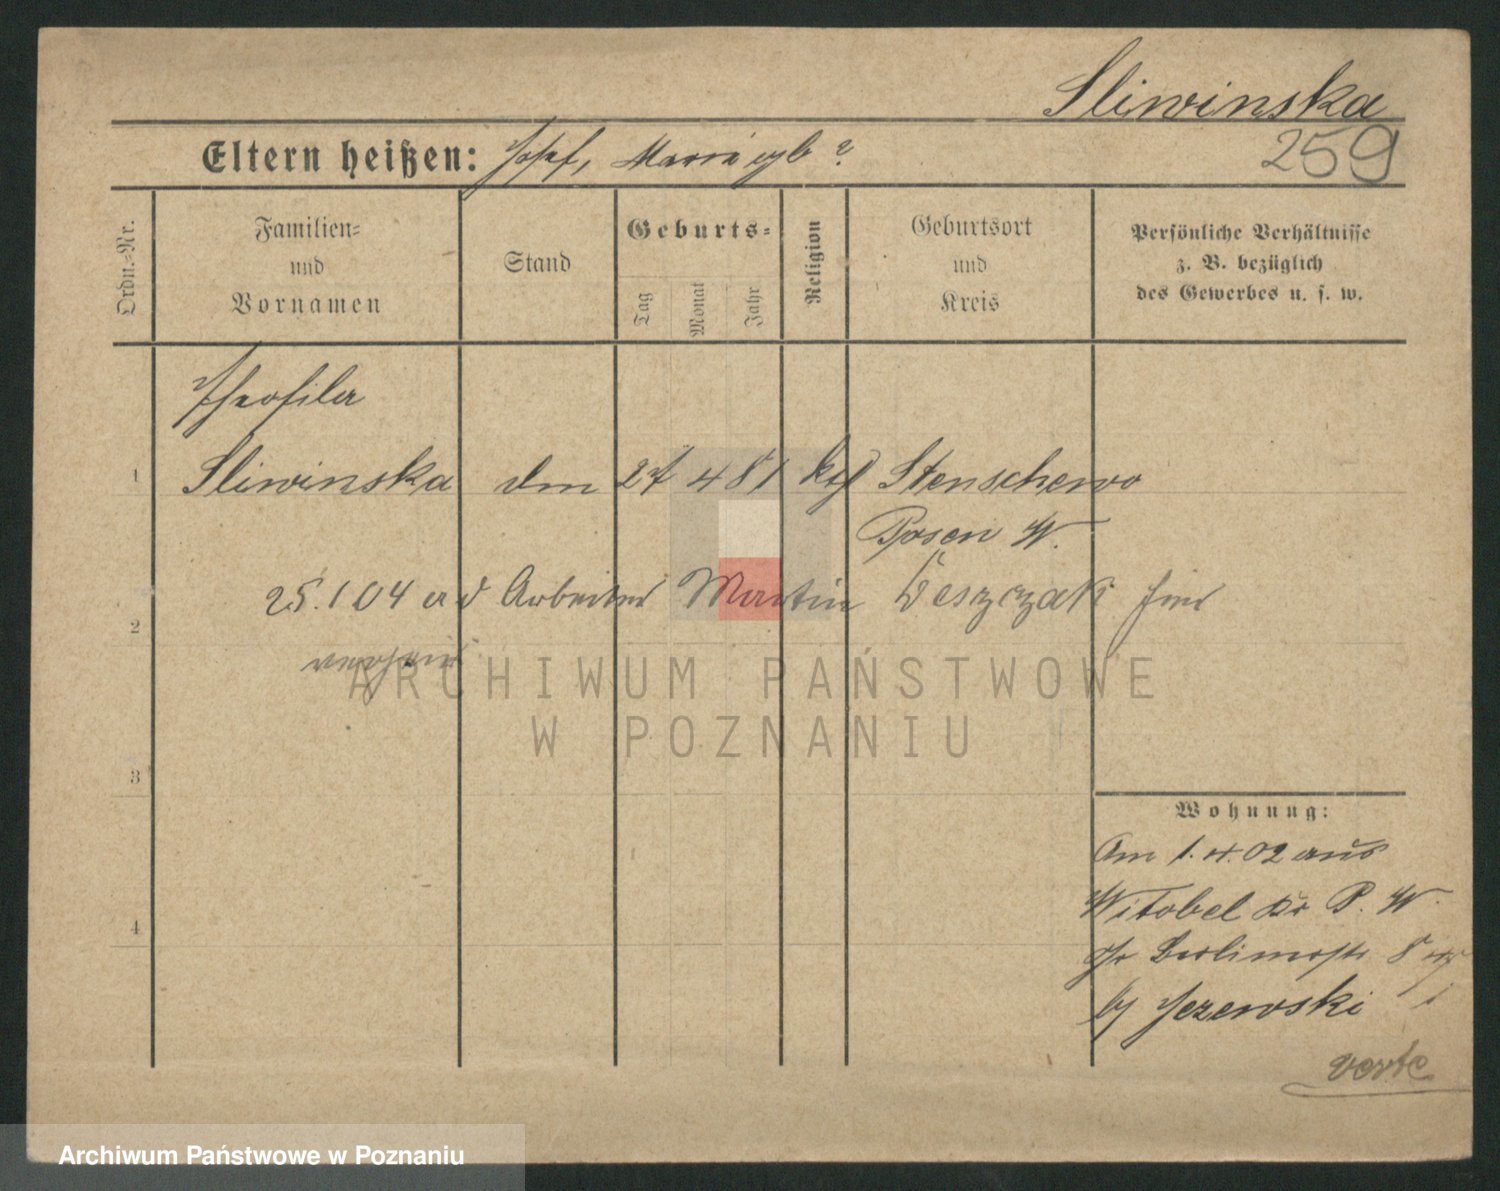 Sliwinska
259
Eltern heißen: Josef, Maria gb ?
Ordn.-Nr.
Familien-
und
Vornamen
Stand
Geburts-
Tag
Monat
Jahr
Religion
Geburtsort
und
Kreis
Persönliche Verhältnisse
z. B. bezüglich
des Gewerbes u. s. w.
Theofila
1 Sliwinska 27 4 81 ktl Stenschewo
Posen W.
2 25. 1 04 Arbeiter Martin hier
3
Wohnung:
Am 1. 4. 02 aus
4 Witobel Kr P. W.
Berlinerstr 8
by Jezewski
verte
ARCHIWUM PAŃSTWOWE
W POZNANIU
Archiwum Państwowe w Poznaniu